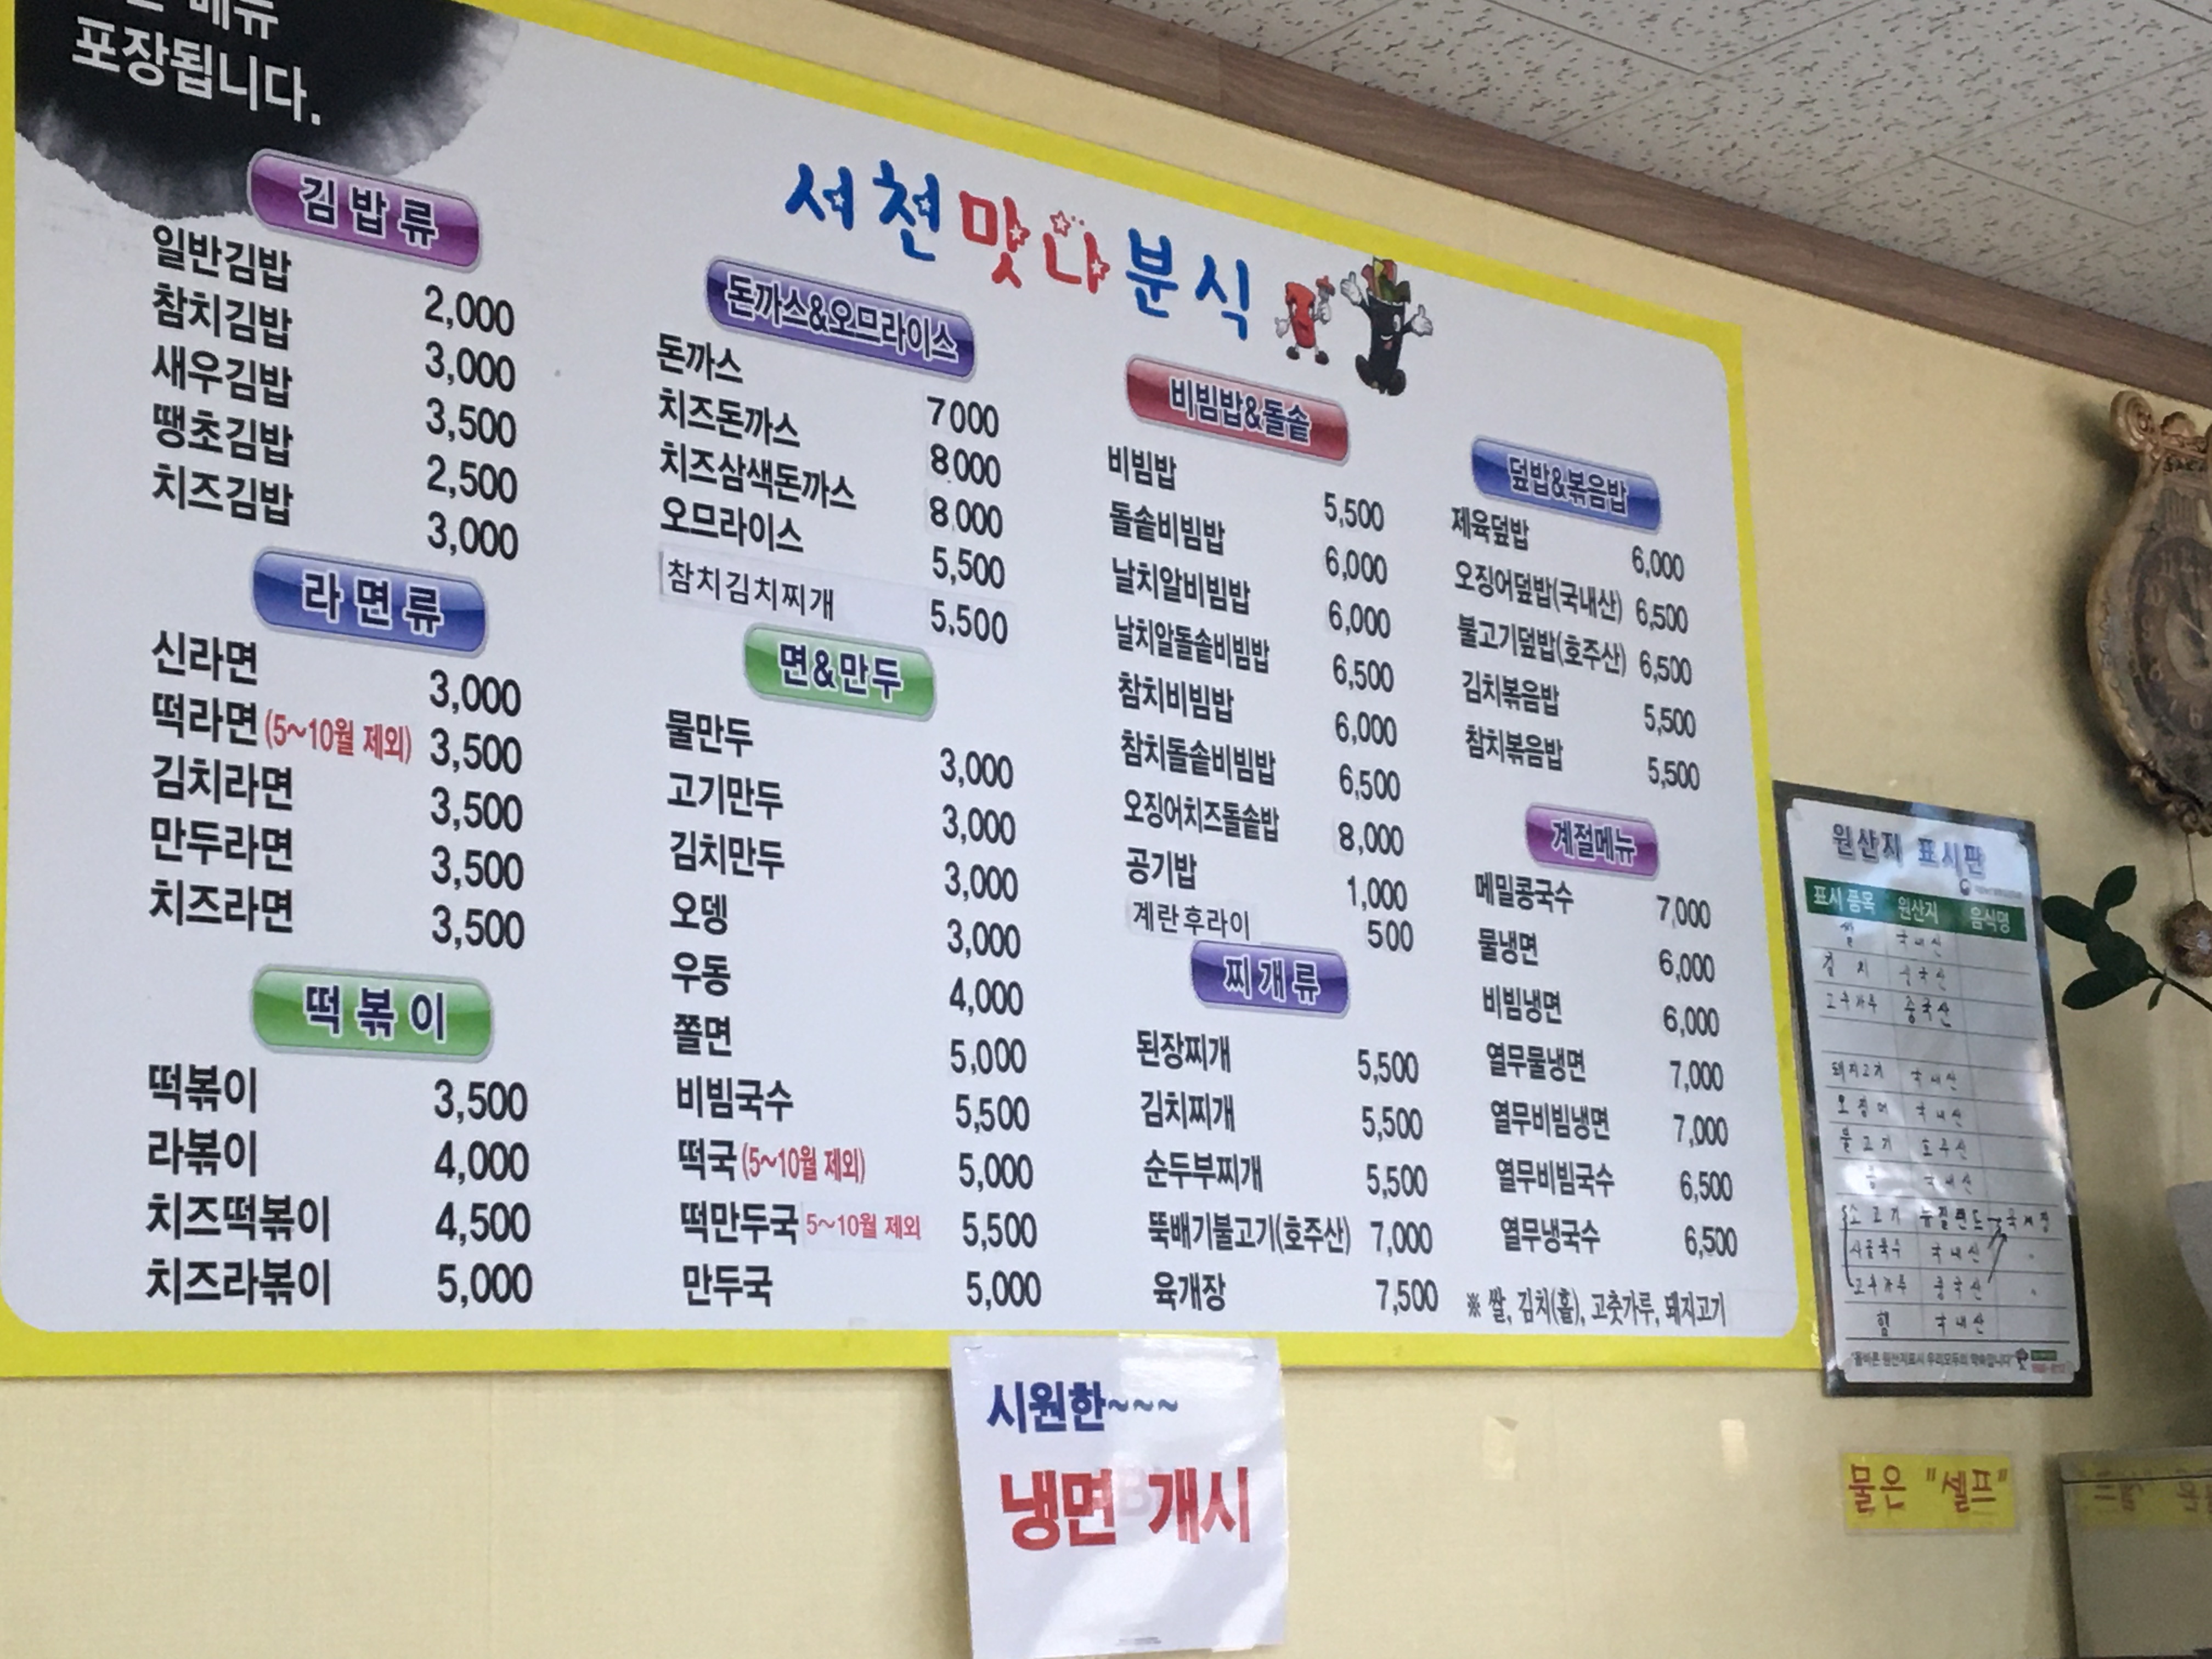 메뉴
포장됩니다.
서천맛나분식
김밥류
일반김밥 2,000
참치김밥 3,000
새우김밥 3,500
땡초김밥 2,500
치즈김밥 3,000
라면류
신라면 3,000
떡라면 (5~10월 제외) 3,500
김치라면 3,500
만두라면 3,500
치즈라면 3,500
떡볶이
떡볶이 3,500
라볶이 4,000
치즈떡볶이 4,500
치즈라볶이 5,000
돈까스&오므라이스
돈까스 7000
치즈돈까스 8000
치즈삼색돈까스 8000
오므라이스 5,500
참치김치찌개 5,500
면&만두
물만두 3,000
고기만두 3,000
김치만두 3,000
오뎅 3,000
우동 4,000
쫄면 5,000
비빔국수 5,500
떡국 (5~10월 제외) 5,000
떡만두국 5~10월 제외 5,500
만두국 5,000
비빔밥&돌솥
비빔밥 5,500
돌솥비빔밥 6,000
날치알비빔밥 6,000
날치알돌솥비빔밥 6,500
참치비빔밥 6,000
참치돌솥비빔밥 6,500
오징어치즈돌솥밥 8,000
공기밥 1,000
계란후라이 500
찌개류
된장찌개 5,500
김치찌개 5,500
순두부찌개 5,500
뚝배기불고기(호주산) 7,000
육개장 7,500
덮밥&볶음밥
제육덮밥 6,000
오징어덮밥(국내산) 6,500
불고기덮밥(호주산) 6,500
김치볶음밥 5,500
참치볶음밥 5,500
계절메뉴
메밀콩국수 7,000
물냉면 6,000
비빔냉면 6,000
열무물냉면 7,000
열무비빔냉면 7,000
열무비빔국수 6,500
열무냉국수 6,500
※ 쌀, 김치(홀), 고춧가루, 돼지고기
시원한~~~
냉면 개시
원산지 표시판
표시 품목 원산지 음식명
쌀 국내산
김치 중국산
고추가루 중국산
돼지고기 국내산
오징어 국내산
불고기 호주산
국내산
소고기 뉴질랜드
사골육수 국내산
고추가루 중국산
햄 국내산
"올바른 원산지표시 우리모두의 약속입니다"
물은 "셀프"